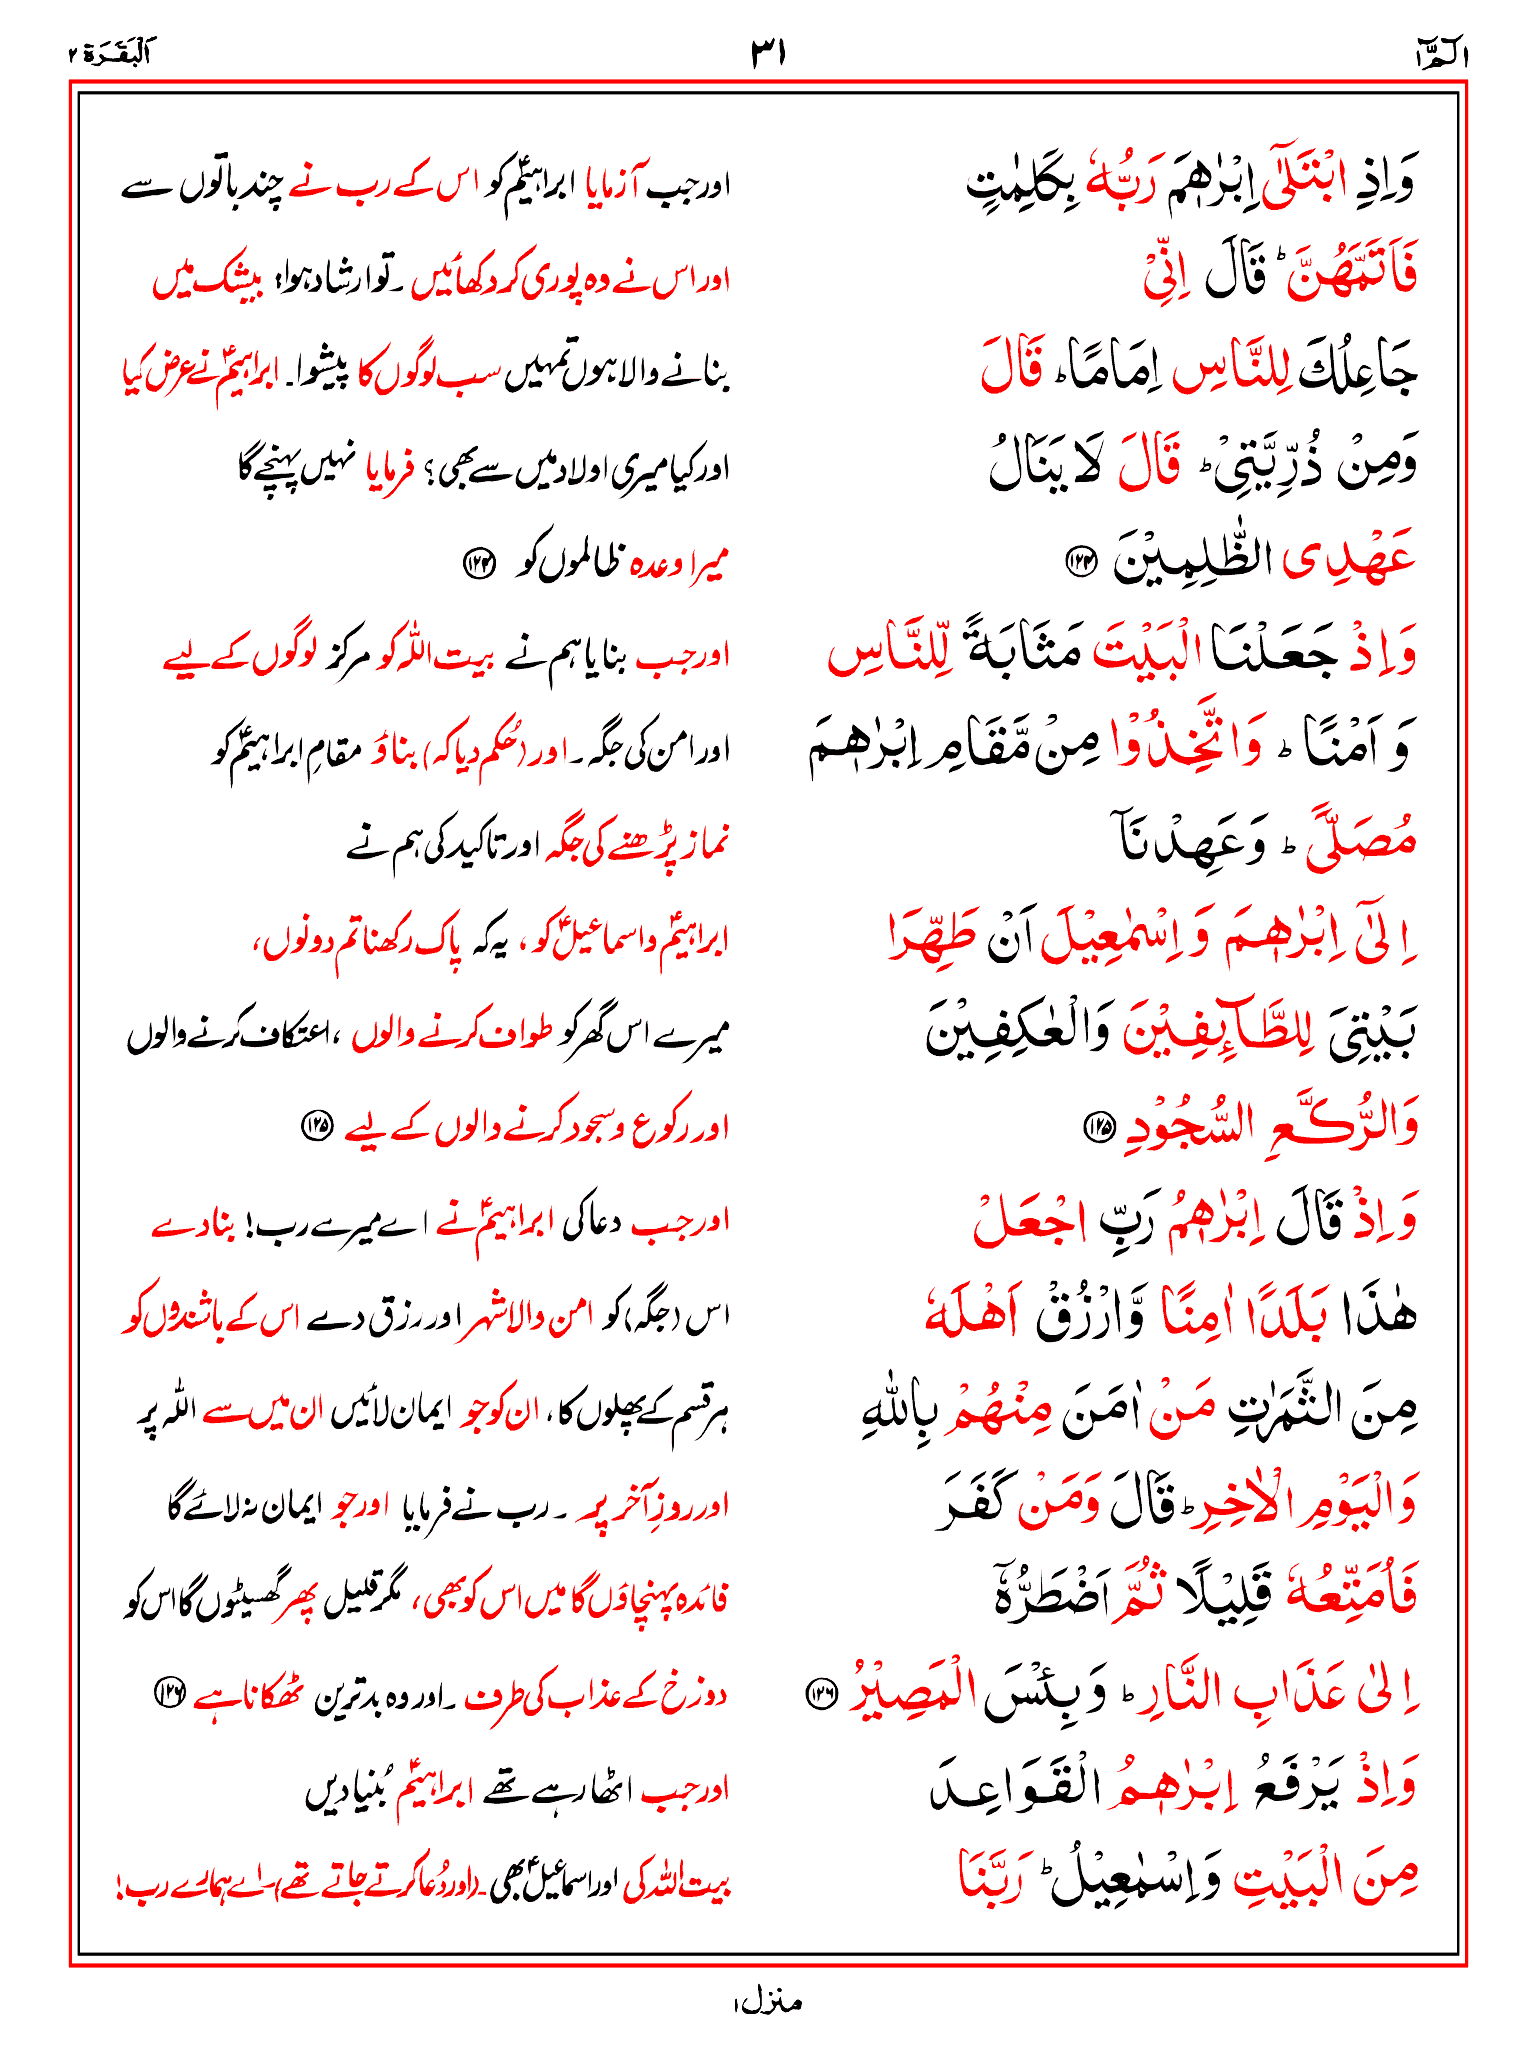 الٓمّٓ ١ ٣١ اَلْبَقَرَة ٢
وَاِذِ ابْتَلٰٓى اِبْرٰهٖمَ رَبُّهٗ بِكَلِمٰتٍ اور جب آزمایا ابراہیمؑ کو اس کے رب نے چند باتوں سے
فَاَتَمَّهُنَّ ؕ قَالَ اِنِّىْ اور اس نے وہ پوری کر دکھائیں ۔ تو ارشاد ہوا: بیشک میں
جَاعِلُكَ لِلنَّاسِ اِمَامًا ؕ قَالَ بنانے والا ہوں تمہیں سب لوگوں کا پیشوا۔ ابراہیمؑ نے عرض کیا
وَمِنْ ذُرِّيَّتِىْ ؕ قَالَ لَا يَنَالُ اور کیا میری اولاد میں سے بھی؟ فرمایا نہیں پہنچے گا
عَهْدِى الظّٰلِمِيْنَ ۝۱۲۴ میرا وعدہ ظالموں کو ۝۱۲۴
وَاِذْ جَعَلْنَا الْبَيْتَ مَثَابَةً لِّلنَّاسِ اور جب بنایا ہم نے بیت اللہ کو مرکز لوگوں کے لیے
وَ اَمْنًا ؕ وَاتَّخِذُوْا مِنْ مَّقَامِ اِبْرٰهٖمَ اور امن کی جگہ۔ اور (حُکم دیا کہ) بناؤ مقامِ ابراہیمؑ کو
مُصَلًّى ؕ وَعَهِدْنَآ نماز پڑھنے کی جگہ اور تاکید کی ہم نے
اِلٰٓى اِبْرٰهٖمَ وَاِسْمٰعِيْلَ اَنْ طَهِّرَا ابراہیمؑ و اسماعیلؑ کو، یہ کہ پاک رکھنا تم دونوں،
بَيْتِىَ لِلطَّآىِٕفِيْنَ وَالْعٰكِفِيْنَ میرے اس گھر کو طواف کرنے والوں ،اعتکاف کرنے والوں
وَالرُّكَّعِ السُّجُوْدِ ۝۱۲۵ اور رکوع و سجود کرنے والوں کے لیے ۝۱۲۵
وَاِذْ قَالَ اِبْرٰهٖمُ رَبِّ اجْعَلْ اور جب دعا کی ابراہیمؑ نے اے میرے رب! بنا دے
هٰذَا بَلَدًا اٰمِنًا وَّارْزُقْ اَهْلَهٗ اس (جگہ) کو امن والا شہر اور رزق دے اس کے باشندوں کو
مِنَ الثَّمَرٰتِ مَنْ اٰمَنَ مِنْهُمْ بِاللّٰهِ ہر قسم کے پھلوں کا، ان کو جو ایمان لائیں ان میں سے اللہ پر
وَالْيَوْمِ الْاٰخِرِ ؕ قَالَ وَمَنْ كَفَرَ اور روزِ آخر پر ۔ رب نے فرمایا اور جو ایمان نہ لائے گا
فَاُمَتِّعُهٗ قَلِيْلًا ثُمَّ اَضْطَرُّهٗٓ فائدہ پہنچاؤں گا میں اس کو بھی، مگر قلیل پھر گھسیٹوں گا اس کو
اِلٰى عَذَابِ النَّارِ ؕ وَبِئْسَ الْمَصِيْرُ ۝۱۲۶ دوزخ کے عذاب کی طرف ۔اور وہ بدترین ٹھکانا ہے ۝۱۲۶
وَاِذْ يَرْفَعُ اِبْرٰهٖمُ الْقَوَاعِدَ اور جب اٹھا رہے تھے ابراہیمؑ بُنیادیں
مِنَ الْبَيْتِ وَاِسْمٰعِيْلُ ؕ رَبَّنَا بیت اللہ کی اور اسماعیلؑ بھی۔ (اور دُعا کرتے جاتے تھے)۔ اے ہمارے رب!
منزل ۱